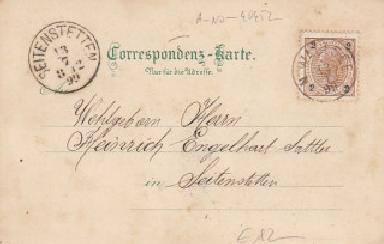 SEITENSTETTEN
13
7
8 12
99
Correspondenz-Karte.
Nur für die Adresse.
2 2
2 2
Wohlgeborn Herrn
Heinrich Engelhart Sattler
in Seitenstetten
E12-